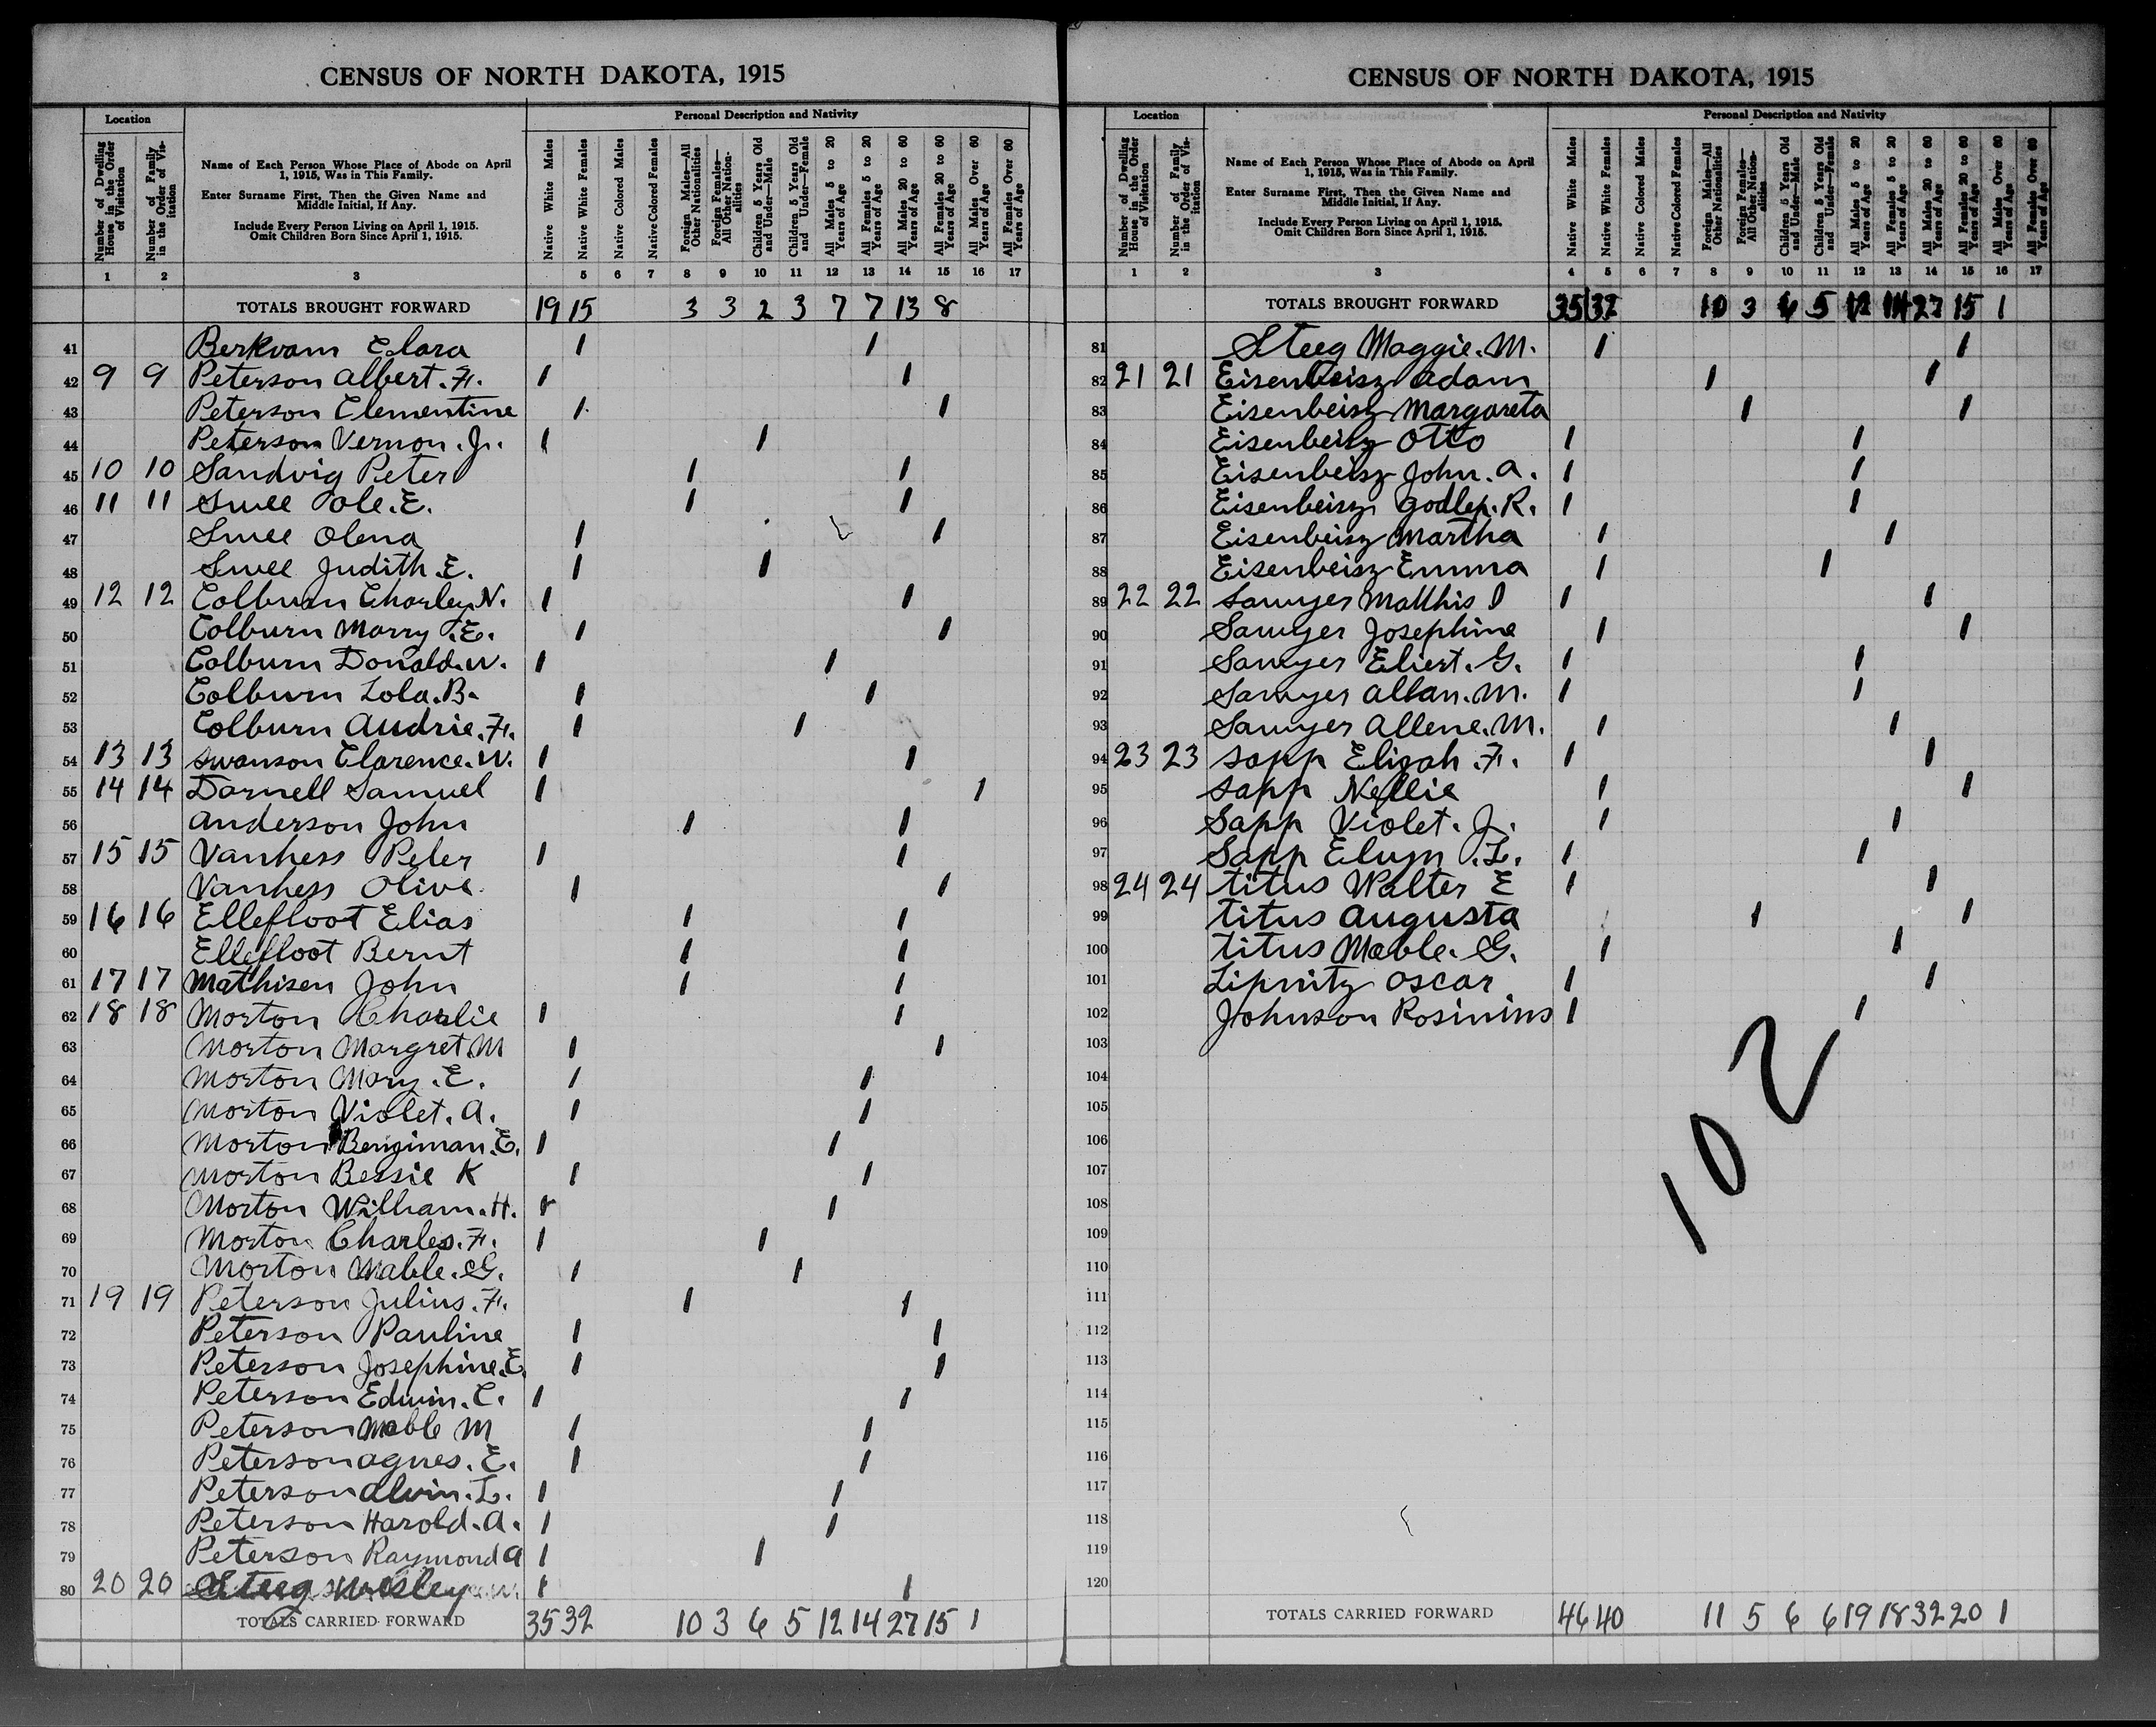 CENSUS OF NORTH DAKOTA, 1915
Location
Personal Description and Nativity
Number of Dwelling House in the Order of Visitation
Number of Family in the Order of Visitation
Name of Each Person Whose Place of Abode on April 1, 1915, Was in This Family.
Enter Surname First, Then the Given Name and Middle Initial, If Any.
Include Every Person Living on April 1, 1915. Omit Children Born Since April 1, 1915.
Native White Males
Native White Females
Native Colored Males
Native Colored Females
Foreign Males—All Other Nationalities
Foreign Females—All Other Nationalities
Children 5 Years Old and Under—Male
Children 5 Years Old and Under—Female
All Males 5 to 20 Years of Age
All Females 5 to 20 Years of Age
All Males 20 to 60 Years of Age
All Females 20 to 60 Years of Age
All Males Over 60 Years of Age
All Females Over 60 Years of Age
1 2 3 5 6 7 8 9 10 11 12 13 14 15 16 17
TOTALS BROUGHT FORWARD 19 15 3 3 2 3 7 7 13 8
41 Berkvam Clara 1 1
42 9 9 Peterson Albert. F. 1 1
43 Peterson Clementine 1 1
44 Peterson Vernon. J. 1 1
45 10 10 Sandvig Peter 1 1
46 11 11 Swee Ole. E. 1 1
47 Swee Olena 1 1
48 Swee Judith. E. 1 1
49 12 12 Colburn Charley. N. 1 1
50 Colburn Marry. E. 1 1
51 Colburn Donald. W. 1 1
52 Colburn Lola. B. 1 1
53 Colburn Audrie. F. 1 1
54 13 13 Swanson Clarence. W. 1 1
55 14 14 Darnell Samuel 1 1
56 Anderson John 1 1
57 15 15 Vanhess Peter 1 1
58 Vanhess Olive 1 1
59 16 16 Ellefloot Elias 1 1
60 Ellefloot Bernt 1 1
61 17 17 Mathisen John 1 1
62 18 18 Morton Charlie 1 1
63 Morton Margret. M 1 1
64 Morton Mary. E. 1 1
65 Morton Violet. A. 1 1
66 Morton Bengiman. E. 1 1
67 Morton Bessie K 1 1
68 Morton William. H. 1 1
69 Morton Charles. F. 1 1
70 Morton Mable. G. 1 1
71 19 19 Peterson Julius. F. 1 1
72 Peterson Pauline 1 1
73 Peterson Josephine. E. 1 1
74 Peterson Edwin. C. 1 1
75 Peterson Mable M 1 1
76 Peterson Agnes. E. 1 1
77 Peterson Alvin. L. 1 1
78 Peterson Harold. A. 1 1
79 Peterson Raymond A 1 1
80 20 20 Steeg Wesley 1 1
TOTALS CARRIED FORWARD 35 32 10 3 6 5 12 14 27 15 1
CENSUS OF NORTH DAKOTA, 1915
Location
Personal Description and Nativity
Number of Dwelling House in the Order of Visitation
Number of Family in the Order of Visitation
Name of Each Person Whose Place of Abode on April 1, 1915, Was in This Family.
Enter Surname First, Then the Given Name and Middle Initial, If Any.
Include Every Person Living on April 1, 1915. Omit Children Born Since April 1, 1915.
Native White Males
Native White Females
Native Colored Males
Native Colored Females
Foreign Males—All Other Nationalities
Foreign Females—All Other Nationalities
Children 5 Years Old and Under—Male
Children 5 Years Old and Under—Female
All Males 5 to 20 Years of Age
All Females 5 to 20 Years of Age
All Males 20 to 60 Years of Age
All Females 20 to 60 Years of Age
All Males Over 60 Years of Age
All Females Over 60 Years of Age
1 2 3 4 5 6 7 8 9 10 11 12 13 14 15 16 17
TOTALS BROUGHT FORWARD 35 32 10 3 6 5 12 14 27 15 1
81 Steeg Maggie. M. 1 1
82 21 21 Eisenbeisz Adam 1 1
83 Eisenbeisz Margareta 1 1
84 Eisenbeisz Otto 1 1
85 Eisenbeisz John. A. 1 1
86 Eisenbeisz Godlep. R. 1 1
87 Eisenbeisz Martha 1 1
88 Eisenbeisz Emma 1 1
89 22 22 Sawyer Matthis 1 1
90 Sawyer Josephine 1 1
91 Sawyer Eliert. G. 1 1
92 Sawyer Allan. M. 1 1
93 Sawyer Allene. M. 1 1
94 23 23 Sapp Elizah. F. 1 1
95 Sapp Nellie 1 1
96 Sapp Violet. J. 1 1
97 Sapp Elvyn. L. 1 1
98 24 24 Titus Walter E 1 1
99 Titus Augusta 1 1
100 Titus Mable. G. 1 1
101 Lipnitz Oscar 1 1
102 Johnson Rosinins 1 1
103
104
105
106
107
108
109
110
111
112
113
114
115
116
117
118
119
120
102
TOTALS CARRIED FORWARD 46 40 11 5 6 6 19 18 32 20 1